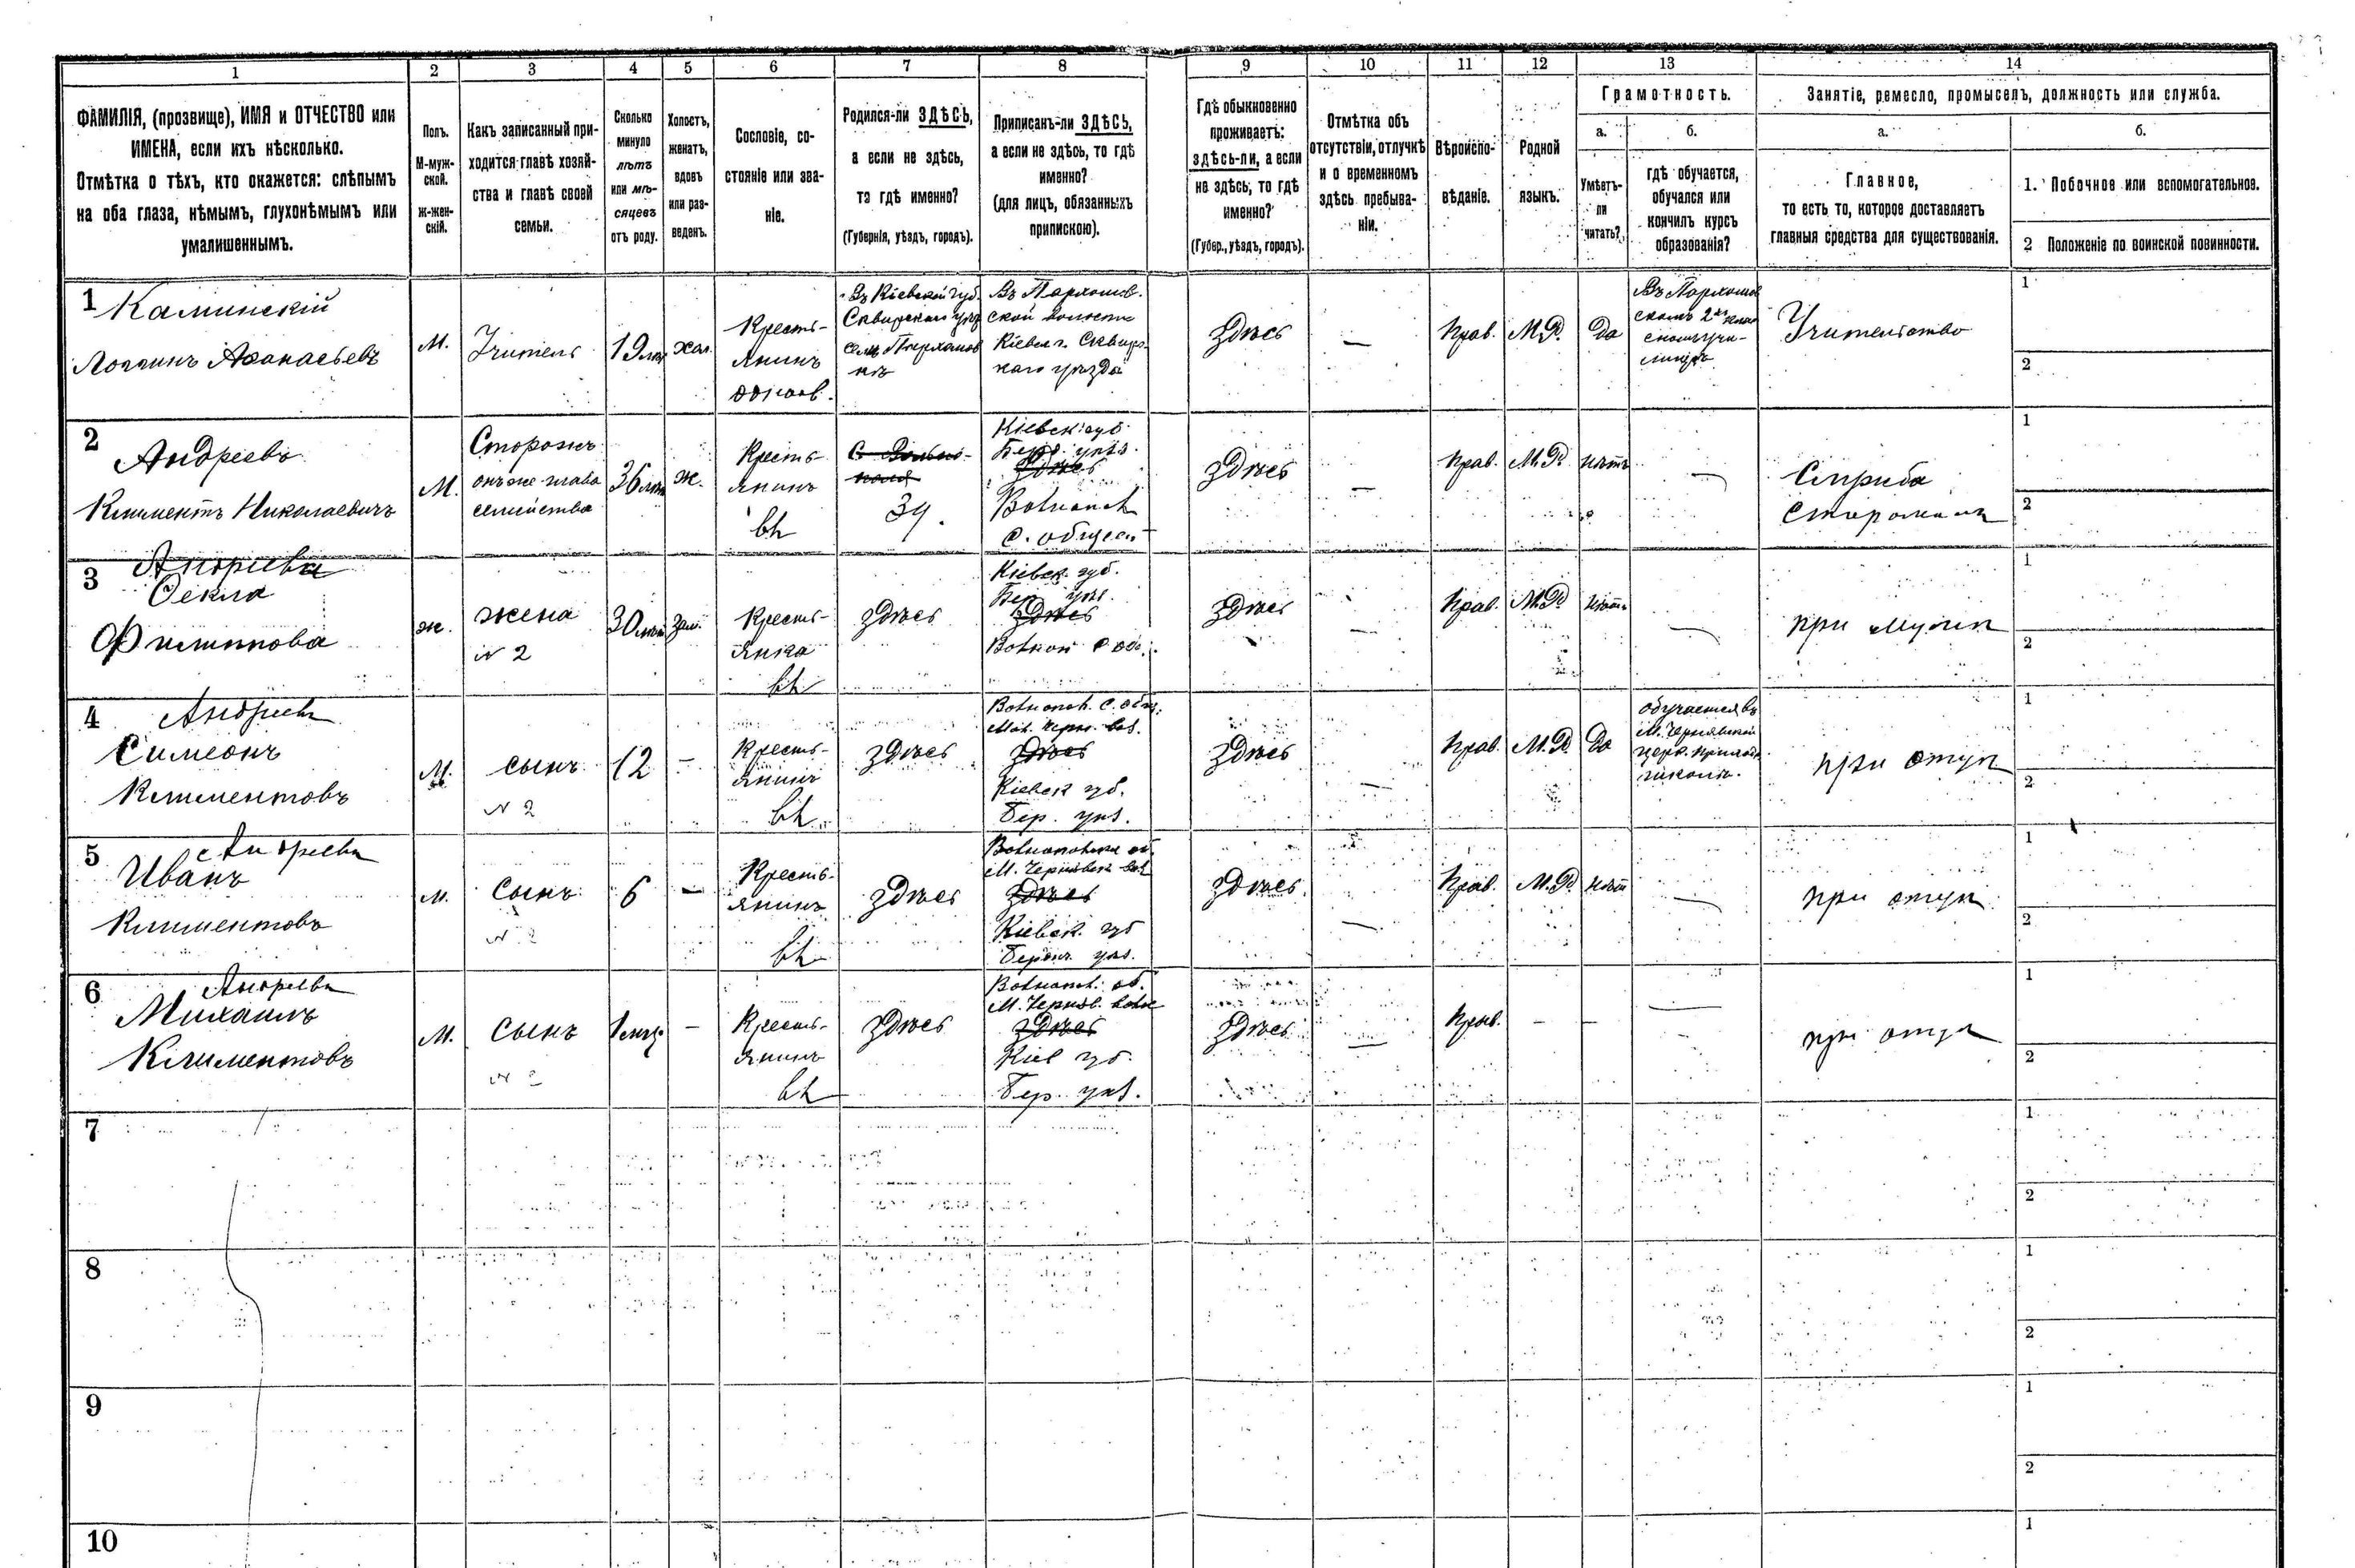 1 2 3 4 5 6 7 8 9 10 11 12 13 14
ФАМИЛІЯ, (прозвище), ИМЯ и ОТЧЕСТВО или
ИМЕНА, если ихъ нѣсколько.
Отмѣтка о тѣхъ, кто окажется: слѣпымъ
на оба глаза, нѣмымъ, глухонѣмымъ или
умалишеннымъ.
Полъ.
М-муж-
ской.
Ж-жен-
скій.
Какъ записанный при-
ходится главѣ хозяй-
ства и главѣ своей
семьи.
Сколько
минуло
лѣтъ
или мѣ-
сяцевъ
отъ роду.
Холостъ,
женатъ,
вдовъ
или раз-
веденъ.
Сословіе, со-
стояніе или зва-
ніе.
Родился-ли ЗДѢСЬ,
а если не здѣсь,
то гдѣ именно?
(Губернія, уѣздъ, городъ).
Приписанъ-ли ЗДѢСЬ,
а если не здѣсь, то гдѣ
именно?
(для лицъ, обязанныхъ
припискою).
Гдѣ обыкновенно
проживаетъ:
здѣсь-ли, а если
не здѣсь, то гдѣ
именно?
(Губер., уѣздъ, городъ).
Отмѣтка объ
отсутствіи, отлучкѣ
и о временномъ
здѣсь пребыва-
ніи.
Вѣроиспо-
вѣданіе.
Родной
языкъ.
Грамотность.
а.
Умѣетъ-
ли
читать?
б.
гдѣ обучается,
обучался или
кончилъ курсъ
образованія?
Занятіе, ремесло, промыселъ, должность или служба.
а.
Главное,
то есть то, которое доставляетъ
главныя средства для существованія.
б.
1. Побочное или вспомогательное.
2 Положеніе по воинской повинности.
1 Каминскій
Логгинъ Аѳанасьевъ
М.
Учитель
19 лѣт
хол.
Кресть-
янинъ
Въ Кіевской губ.
Сквирскаго уѣз
Въ Пархомов.
ской волости
Кіевск. Сквир.
каго уѣзда
Здѣсь
—
Прав.
М.Р.
Да
Въ Пархомов
скомъ 2хъ клас
сномъ учи-
лищѣ
Учительство
1
2
2
Андреевъ
Климентъ Николаевичъ
М.
Сторожъ
онъ же глава
семейства
36 лѣт
ж.
Кресть-
янинъ
Кіевск. губ.
Берд. уѣз.
здѣсь
Здѣсь
—
Прав.
М.Р.
нѣтъ
—
Служба
Сторожемъ
1
2
3
Андреева
Ѳекла
Филипова
ж.
жена
№ 2
30 лѣт
зам.
Кресть-
янка
здѣсь
Кіевск. губ.
Бер. уѣз.
здѣсь
Здѣсь
—
Прав.
М.Р.
нѣтъ
—
при мужѣ
1
2
4
Андреевъ
Симеонъ
Климентовъ
М.
сынъ
№ 2
12
—
Кресть-
янинъ
здѣсь
здѣсь
Кіевск губ.
Бер. уѣз.
Здѣсь
—
Прав.
М.Р.
Да
обучается въ
М. Чернявской
церк. приход.
школѣ.
при отцѣ
1
2
5
Андреевъ
Иванъ
Климентовъ
М.
Сынъ
№ 2
6
—
Кресть-
янинъ
здѣсь
здѣсь
Кіевск. губ
Бердич. уѣз.
Здѣсь
—
Прав.
М.Р.
нѣт
—
при отцѣ
1
2
6
Андреевъ
Михаилъ
Климентовъ
М.
Сынъ
№ 2
1 мѣц
—
Кресть-
янинъ
здѣсь
здѣсь
Кіев губ.
Бер. уѣз.
Здѣсь
—
Прав.
—
—
—
при отцѣ
1
2
7
1
2
8
1
2
9
1
2
10
1